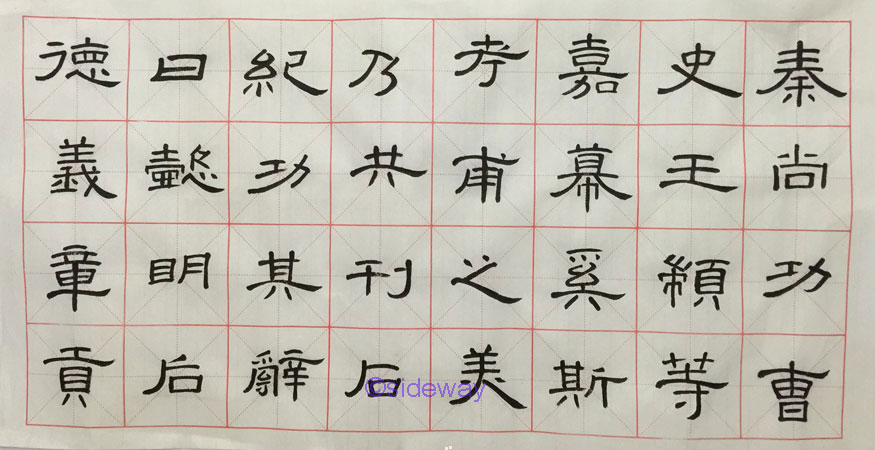 秦尚功曹
史王顓等
嘉幕奚斯
考甫之美
乃共刊石
紀功其辭
曰懿明后
德義章貢
©sideway